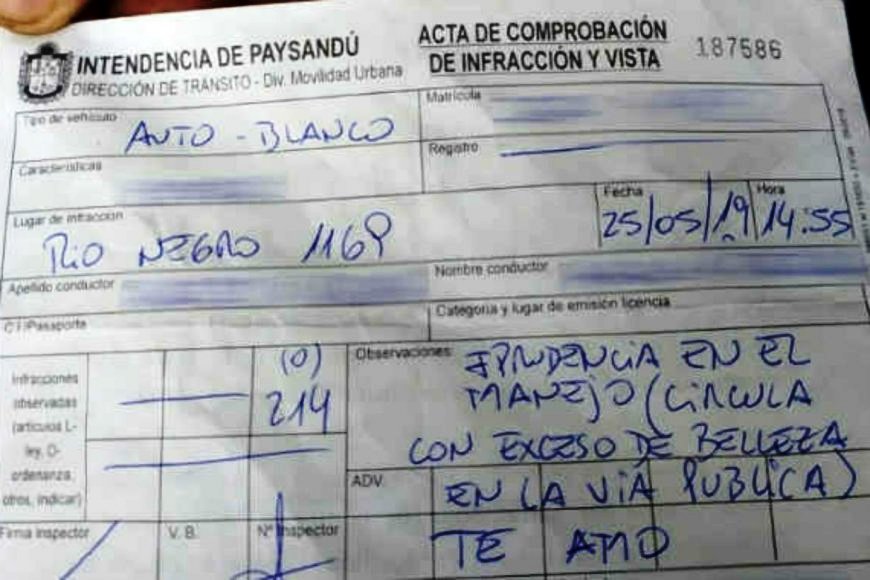 INTENDENCIA DE PAYSANDÚ
DIRECCIÓN DE TRÁNSITO - Div. Movilidad Urbana
ACTA DE COMPROBACIÓN
DE INFRACCIÓN Y VISTA
187586
Tipo de vehículo
AUTO - BLANCO
Matrícula
Características
Registro
Lugar de infracción
RIO NEGRO 1169
Fecha
25/05/19
Hora
14:55
Apellido conductor
Nombre conductor
C.I/Pasaporte
Categoría y lugar de emisión licencia
Infracciones
observadas
(artículos L-
ley, O-
ordenanza,
otros, indicar)
(O)
214
Observaciones:
IPRUDENCIA EN EL
MANEJO (CIRCULA
CON EXCESO DE BELLEZA
ADV.
EN LA VIA PUBLICA)
TE AMO
Firma Inspector
V. B.
Nº Inspector